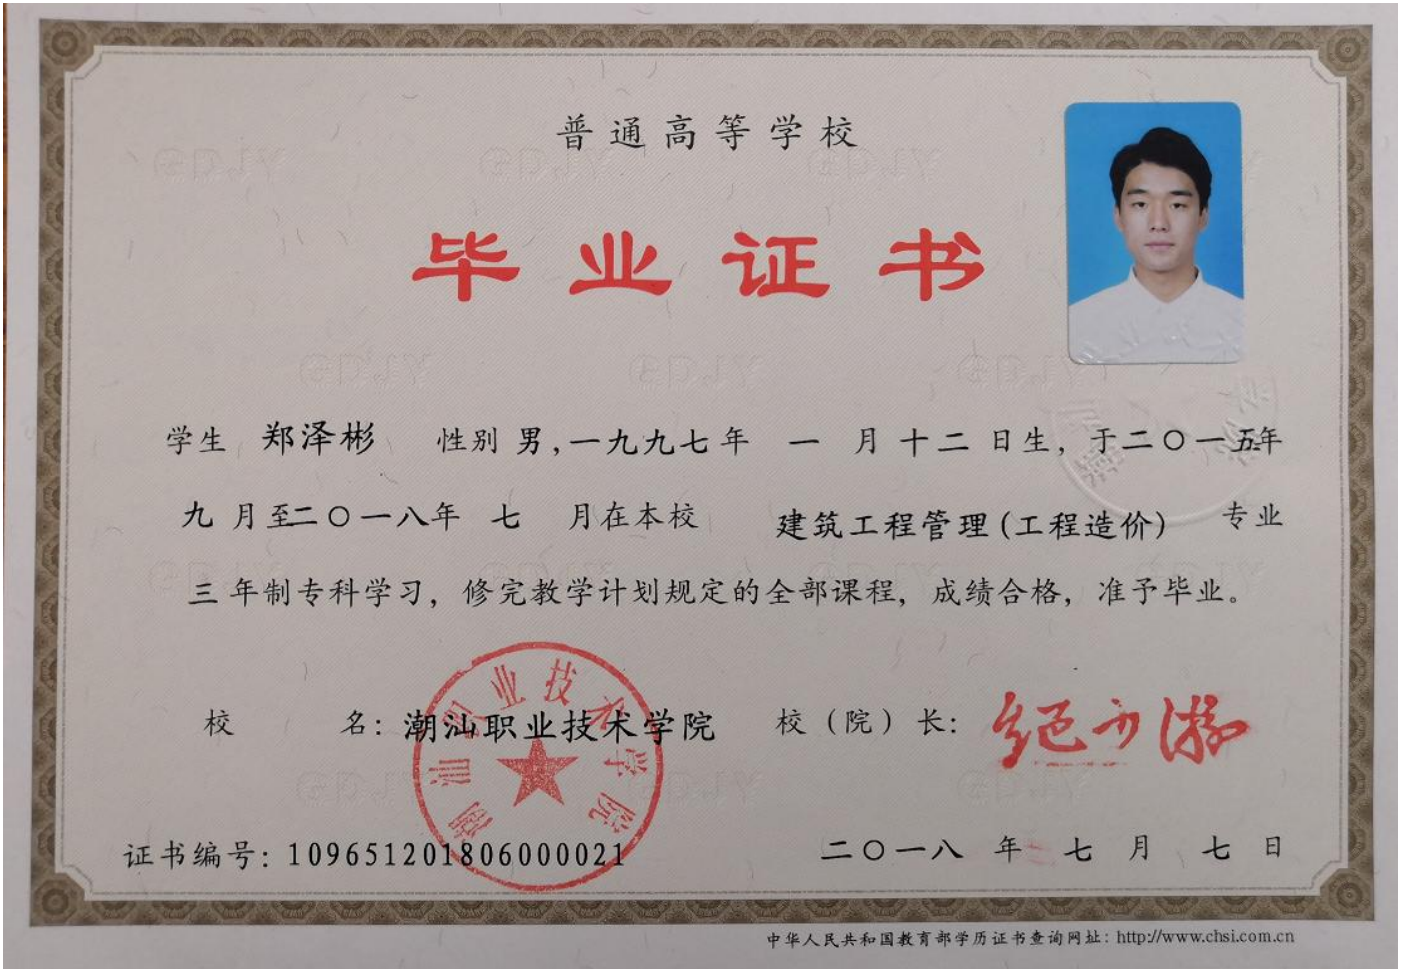 普通高等学校
毕业证书
学生 郑泽彬 性别 男，一九九七年 一 月 十二 日生，于二〇一五年
九 月至二〇一八年 七 月在本校 建筑工程管理(工程造价) 专业
三 年制专科学习，修完教学计划规定的全部课程，成绩合格，准予毕业。
校 名：潮汕职业技术学院 校（院）长：
潮汕职业技术学院
证书编号：109651201806000021 二〇一八 年 七 月 七 日
中华人民共和国教育部学历证书查询网址：http://www.chsi.com.cn